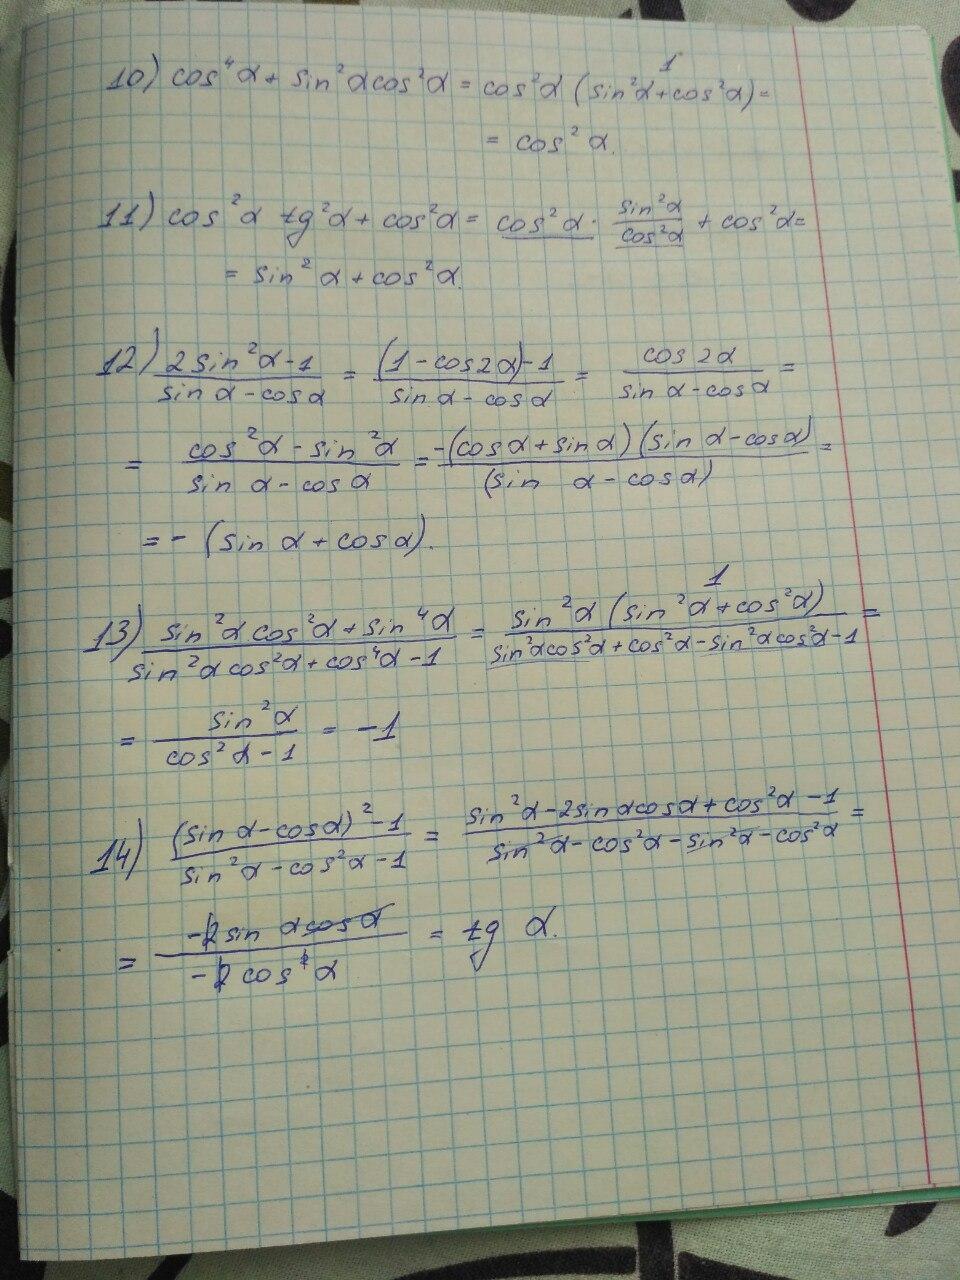 10) cos⁴α + sin²αcos²α = cos²α (sin²α+cos²α)¹ =
= cos²α.
11) cos²α tg²α + cos²α = cos²α · sin²α/cos²α + cos²α =
= sin²α + cos²α.
12) (2sin²α-1)/(sin α-cosα) = ((1-cos2α)-1)/(sin α-cosα) = cos2α/(sin α-cosα) =
= (cos²α-sin²α)/(sin α-cosα) = -(cosα+sinα)(sin α-cosα)/(sin α-cosα) =
= - (sin α+cosα).
13) (sin²αcos²α+sin⁴α)/(sin²αcos²α+cos⁴α-1) = sin²α(sin²α+cos²α)¹/(sin²αcos²α+cos²α-sin²αcos²α-1) =
= sin²α/(cos²α-1) = -1
14) ((sin α-cosα)²-1)/(sin²α-cos²α-1) = (sin²α-2sinαcosα+cos²α-1)/(sin²α-cos²α-sin²α-cos²α) =
= -2sin αcosα/-2cos²α = tg α.